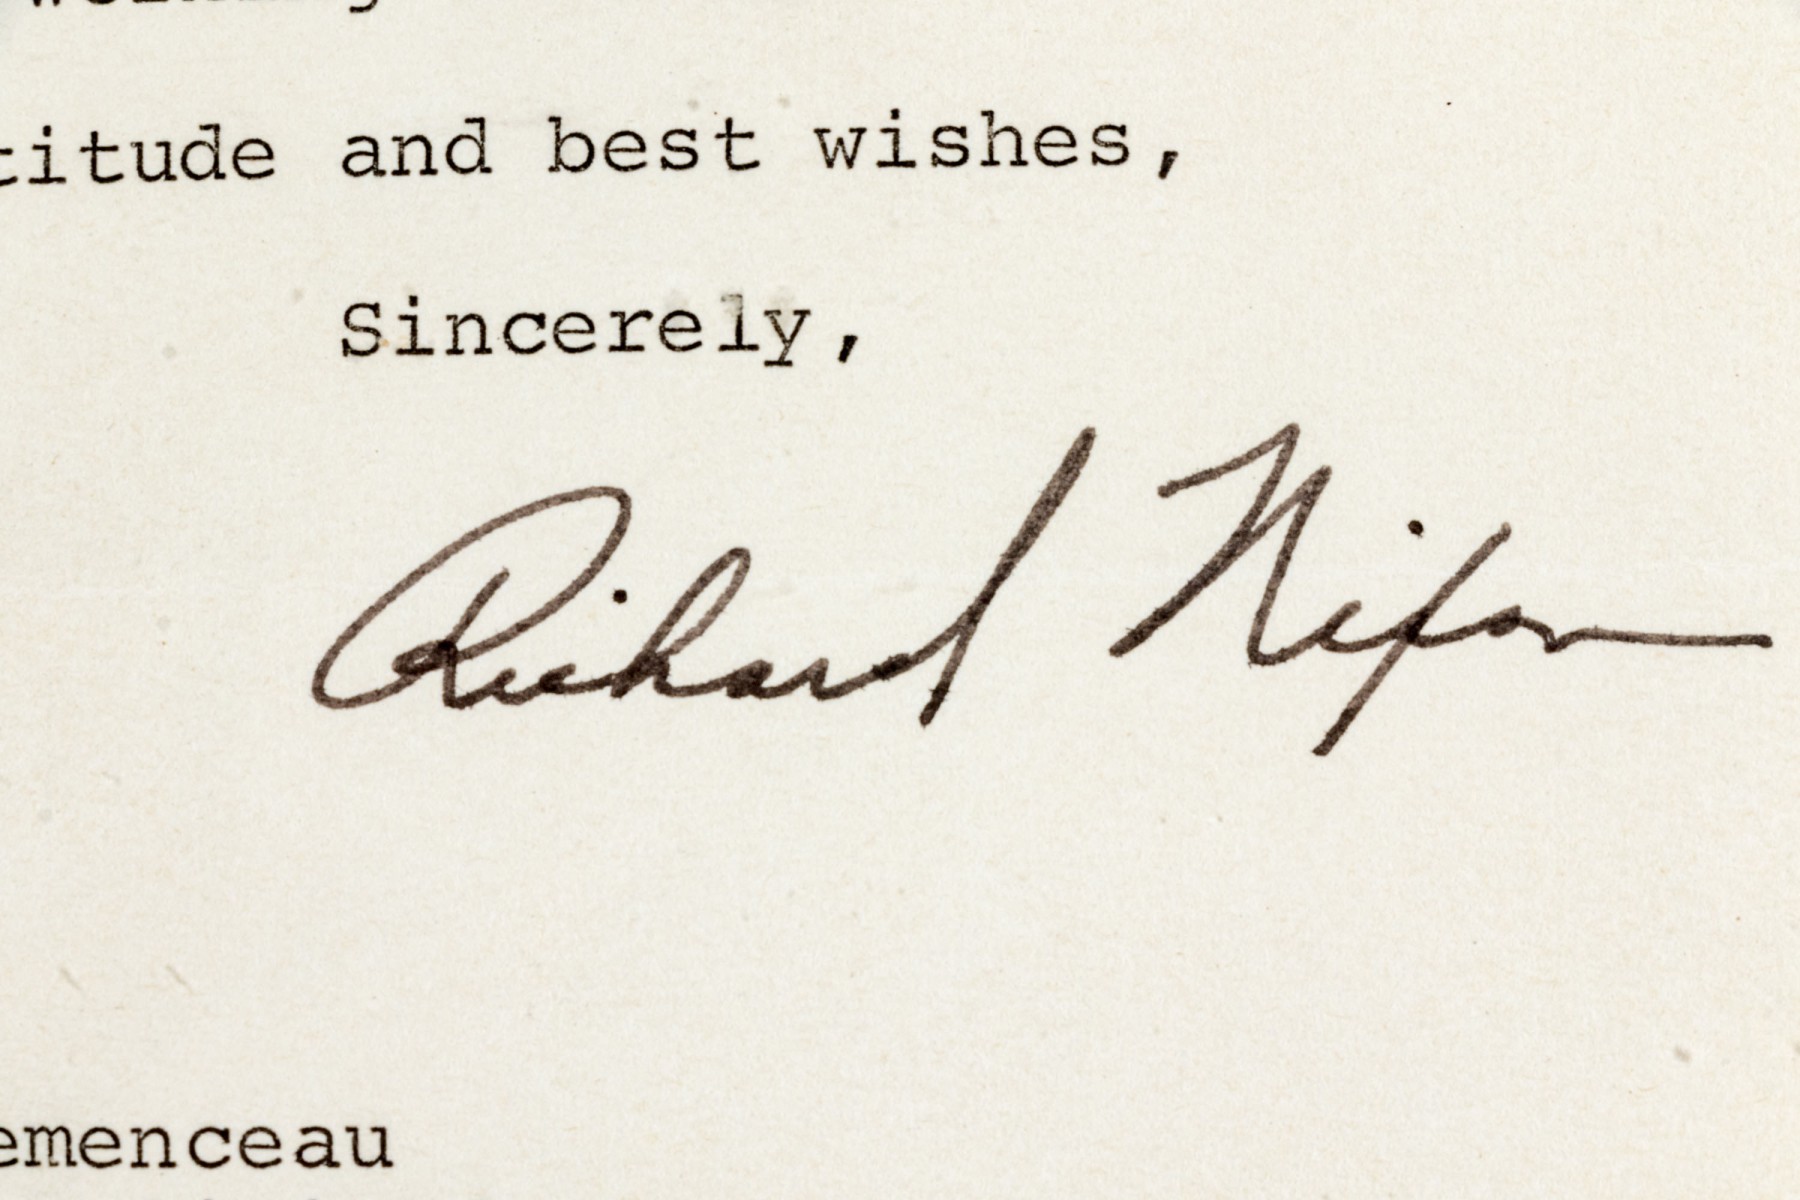 titude and best wishes,
Sincerely,
Richard Nixon
emenceau